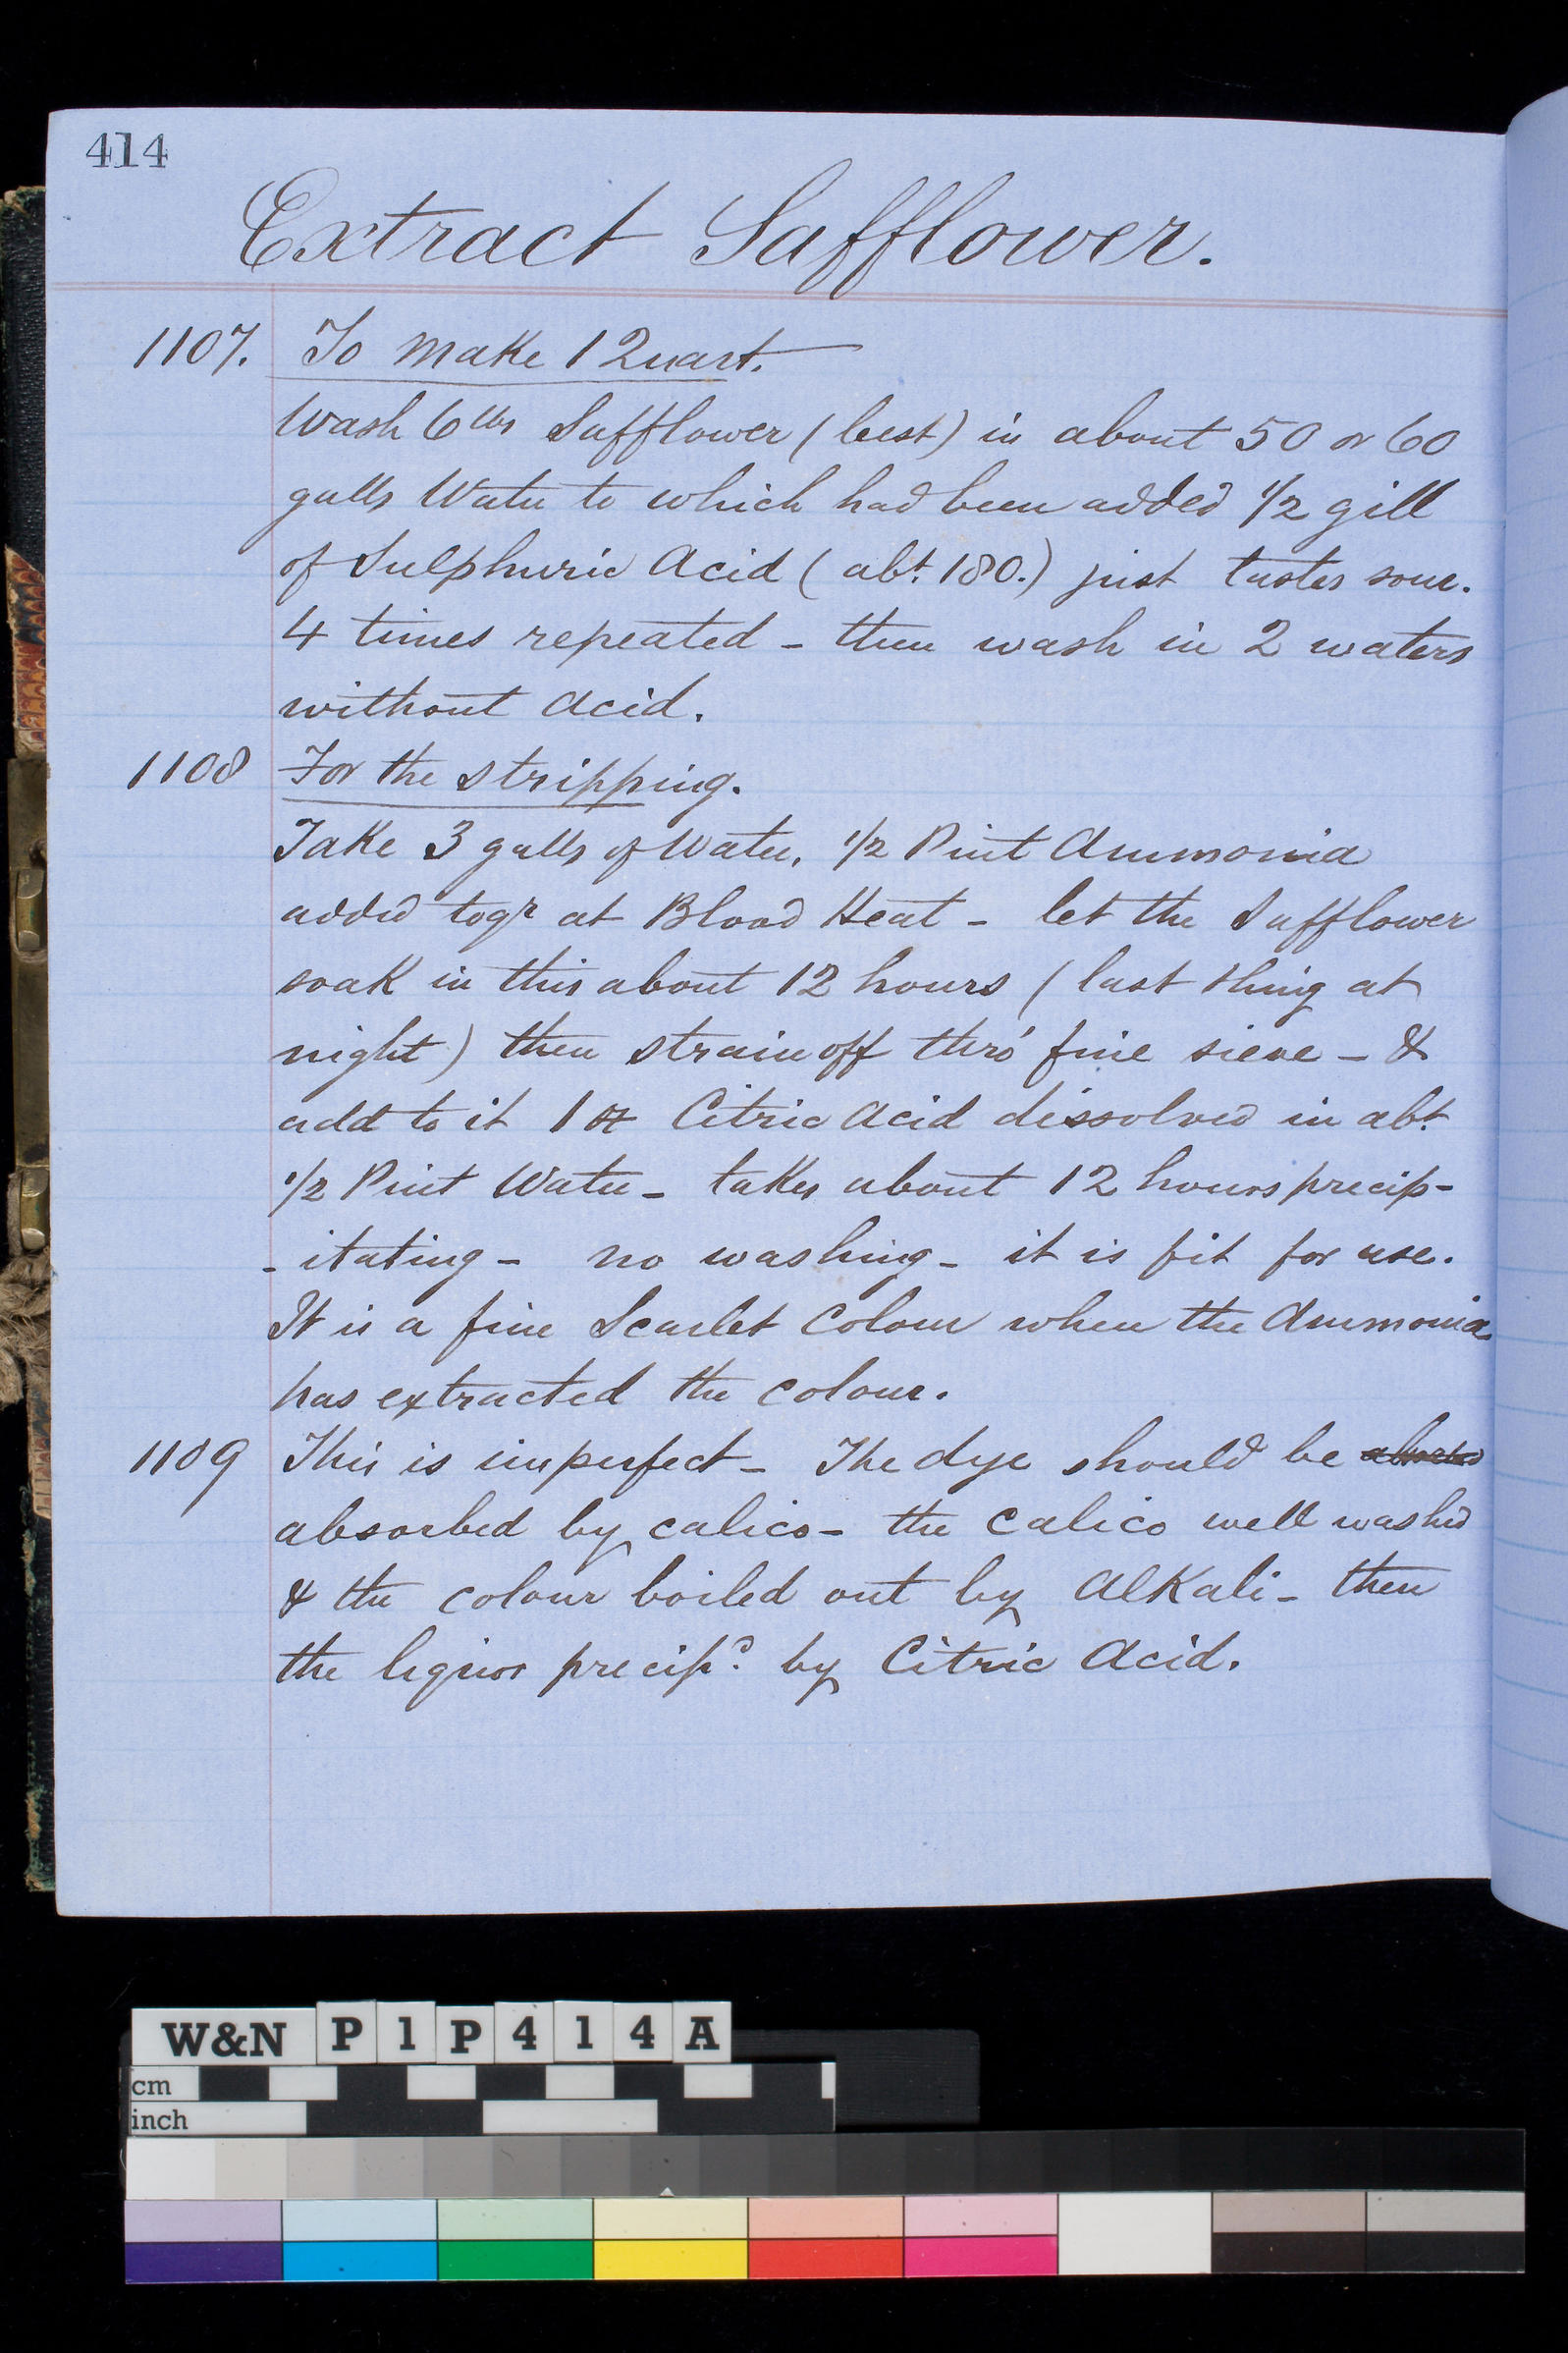 414
Extract Safflower.
1107. To make 1 Quart.
Wash 6 lbs Safflower (best) in about 50 or 60
galls Water to which had been added 1/2 gill
of Sulphuric Acid (abt. 180.) just tastes sour.
4 times repeated - then wash in 2 waters
without acid.
1108 For the stripping.
Take 3 galls of Water, 1/2 Pint Ammonia
added togr at Blood Heat - let the Safflower
soak in this about 12 hours (last thing at
night) then strain off thro' fine sieve - &
add to it 1 Citric Acid dissolved in abt.
1/2 Pint Water - takes about 12 hours precip-
- itating - no washing - it is fit for use.
It is a fine Scarlet Colour when the Ammonia
has extracted the colour.
1109 This is imperfect - The dye should be
absorbed by calico - the calico well washed
& the colour boiled out by Alkali - then
the liquor precipd. by Citric Acid.
W&N P1P414A
cm
inch